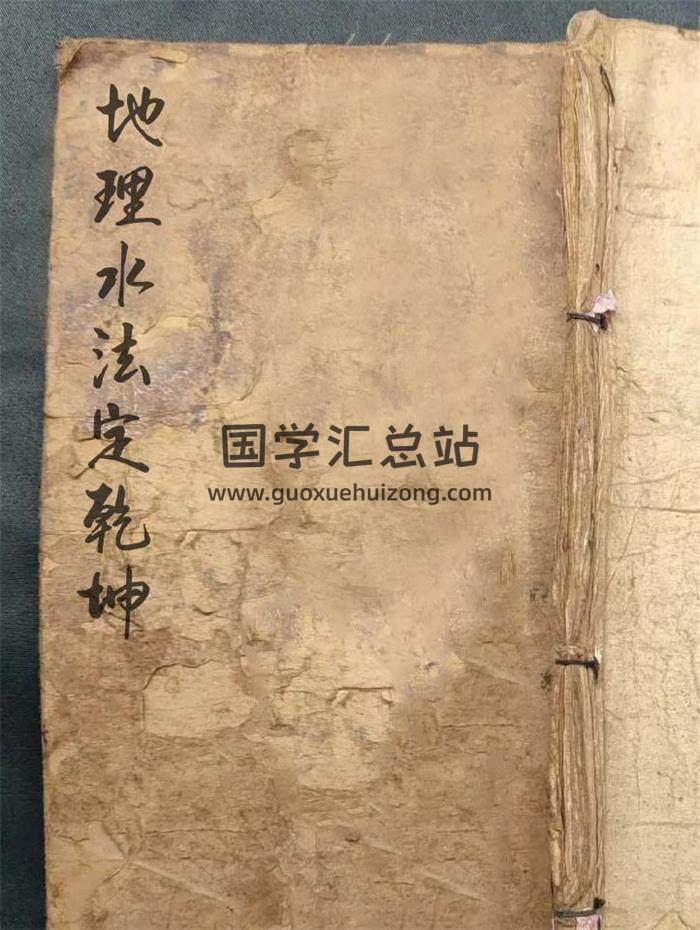 地理水法定乾坤
国学汇总站
www.guoxuehuizong.com